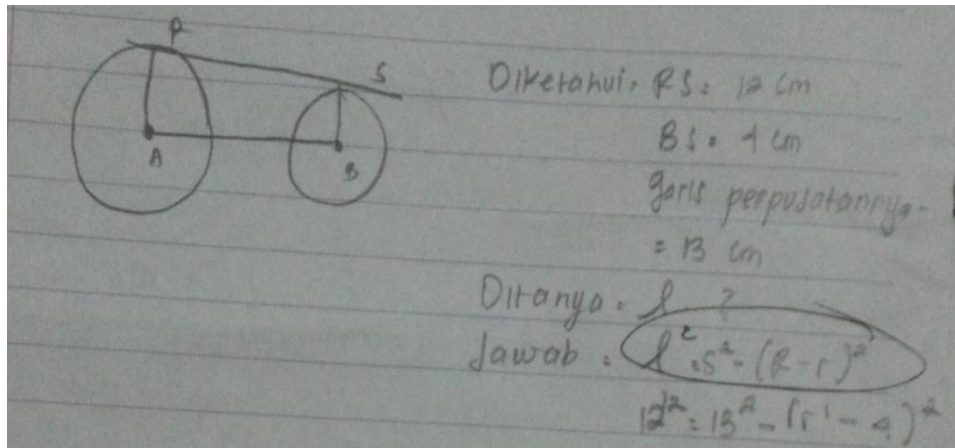 R
S
A
B
Diketahui, RS = 12 cm
BS = 4 cm
garis perpusatannya -
= 13 cm
Ditanya = l ?
Jawab = l² = s² - (R - r)²
12² = 13² - (r¹ - 4)²